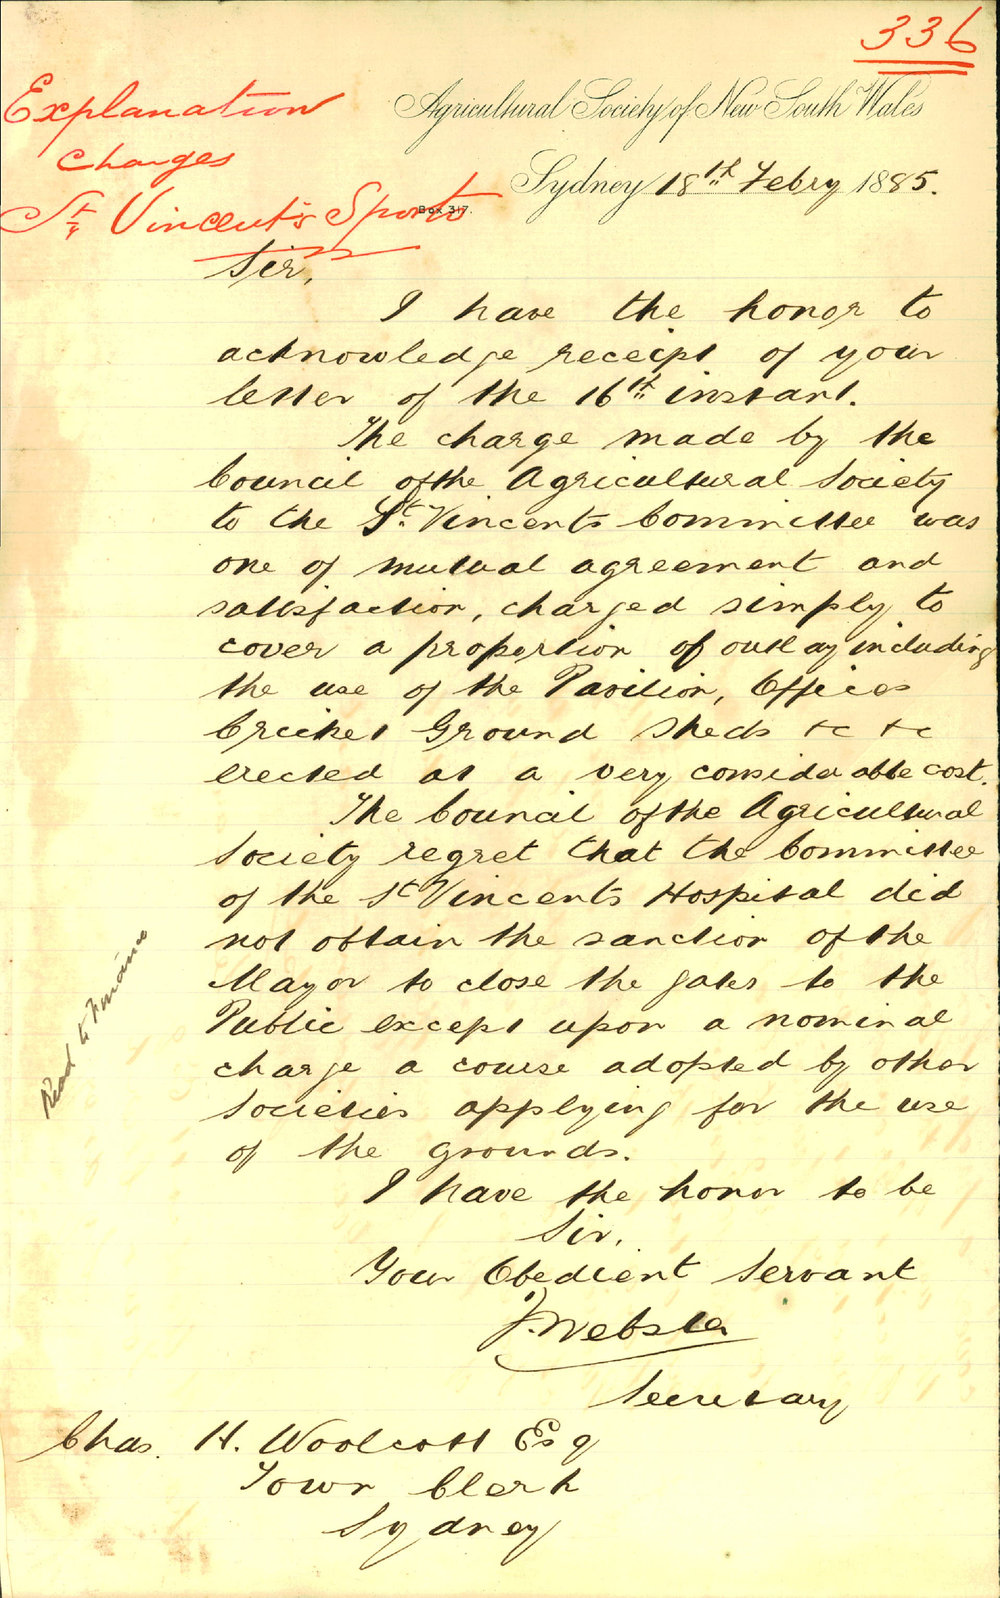 336
Explanation
Charges
St Vincent's Sports
Agricultural Society of New South Wales
Sydney 18th Febry 1885.
Box 317
Sir,
I have the honor to
acknowledge receipt of your
letter of the 16th instant.
The charge made by the
Council of the Agricultural Society
to the St. Vincents Committee was
one of mutual agreement and
satisfaction, charged simply to
cover a proportion of outlay including
the use of the Pavilion, Offices
Cricket Ground Sheds &c &c
erected at a very considerable cost.
The Council of the Agricultural
Society regret that the Committee
of the St Vincents Hospital did
not obtain the sanction of the
Mayor to close the gates to the
Public except upon a nominal
charge a course adopted by other
Societies applying for the use
of the grounds.
I have the honor to be
Sir,
Your Obedient Servant
J. Webster
Secretary
Chas. H. Woolcott Esq
Town Clerk
Sydney
Read to Finance